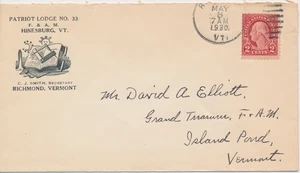 PATRIOT LODGE NO. 33
F. & A. M.
HINESBURG, VT.
C. J. SMITH, SECRETARY
RICHMOND, VERMONT
MAY
7 AM
1930
VT.
2 CENTS 2
Mr. David A Elliott,
Grand Treasurer, F & A M.
Island Pond,
Vermont.